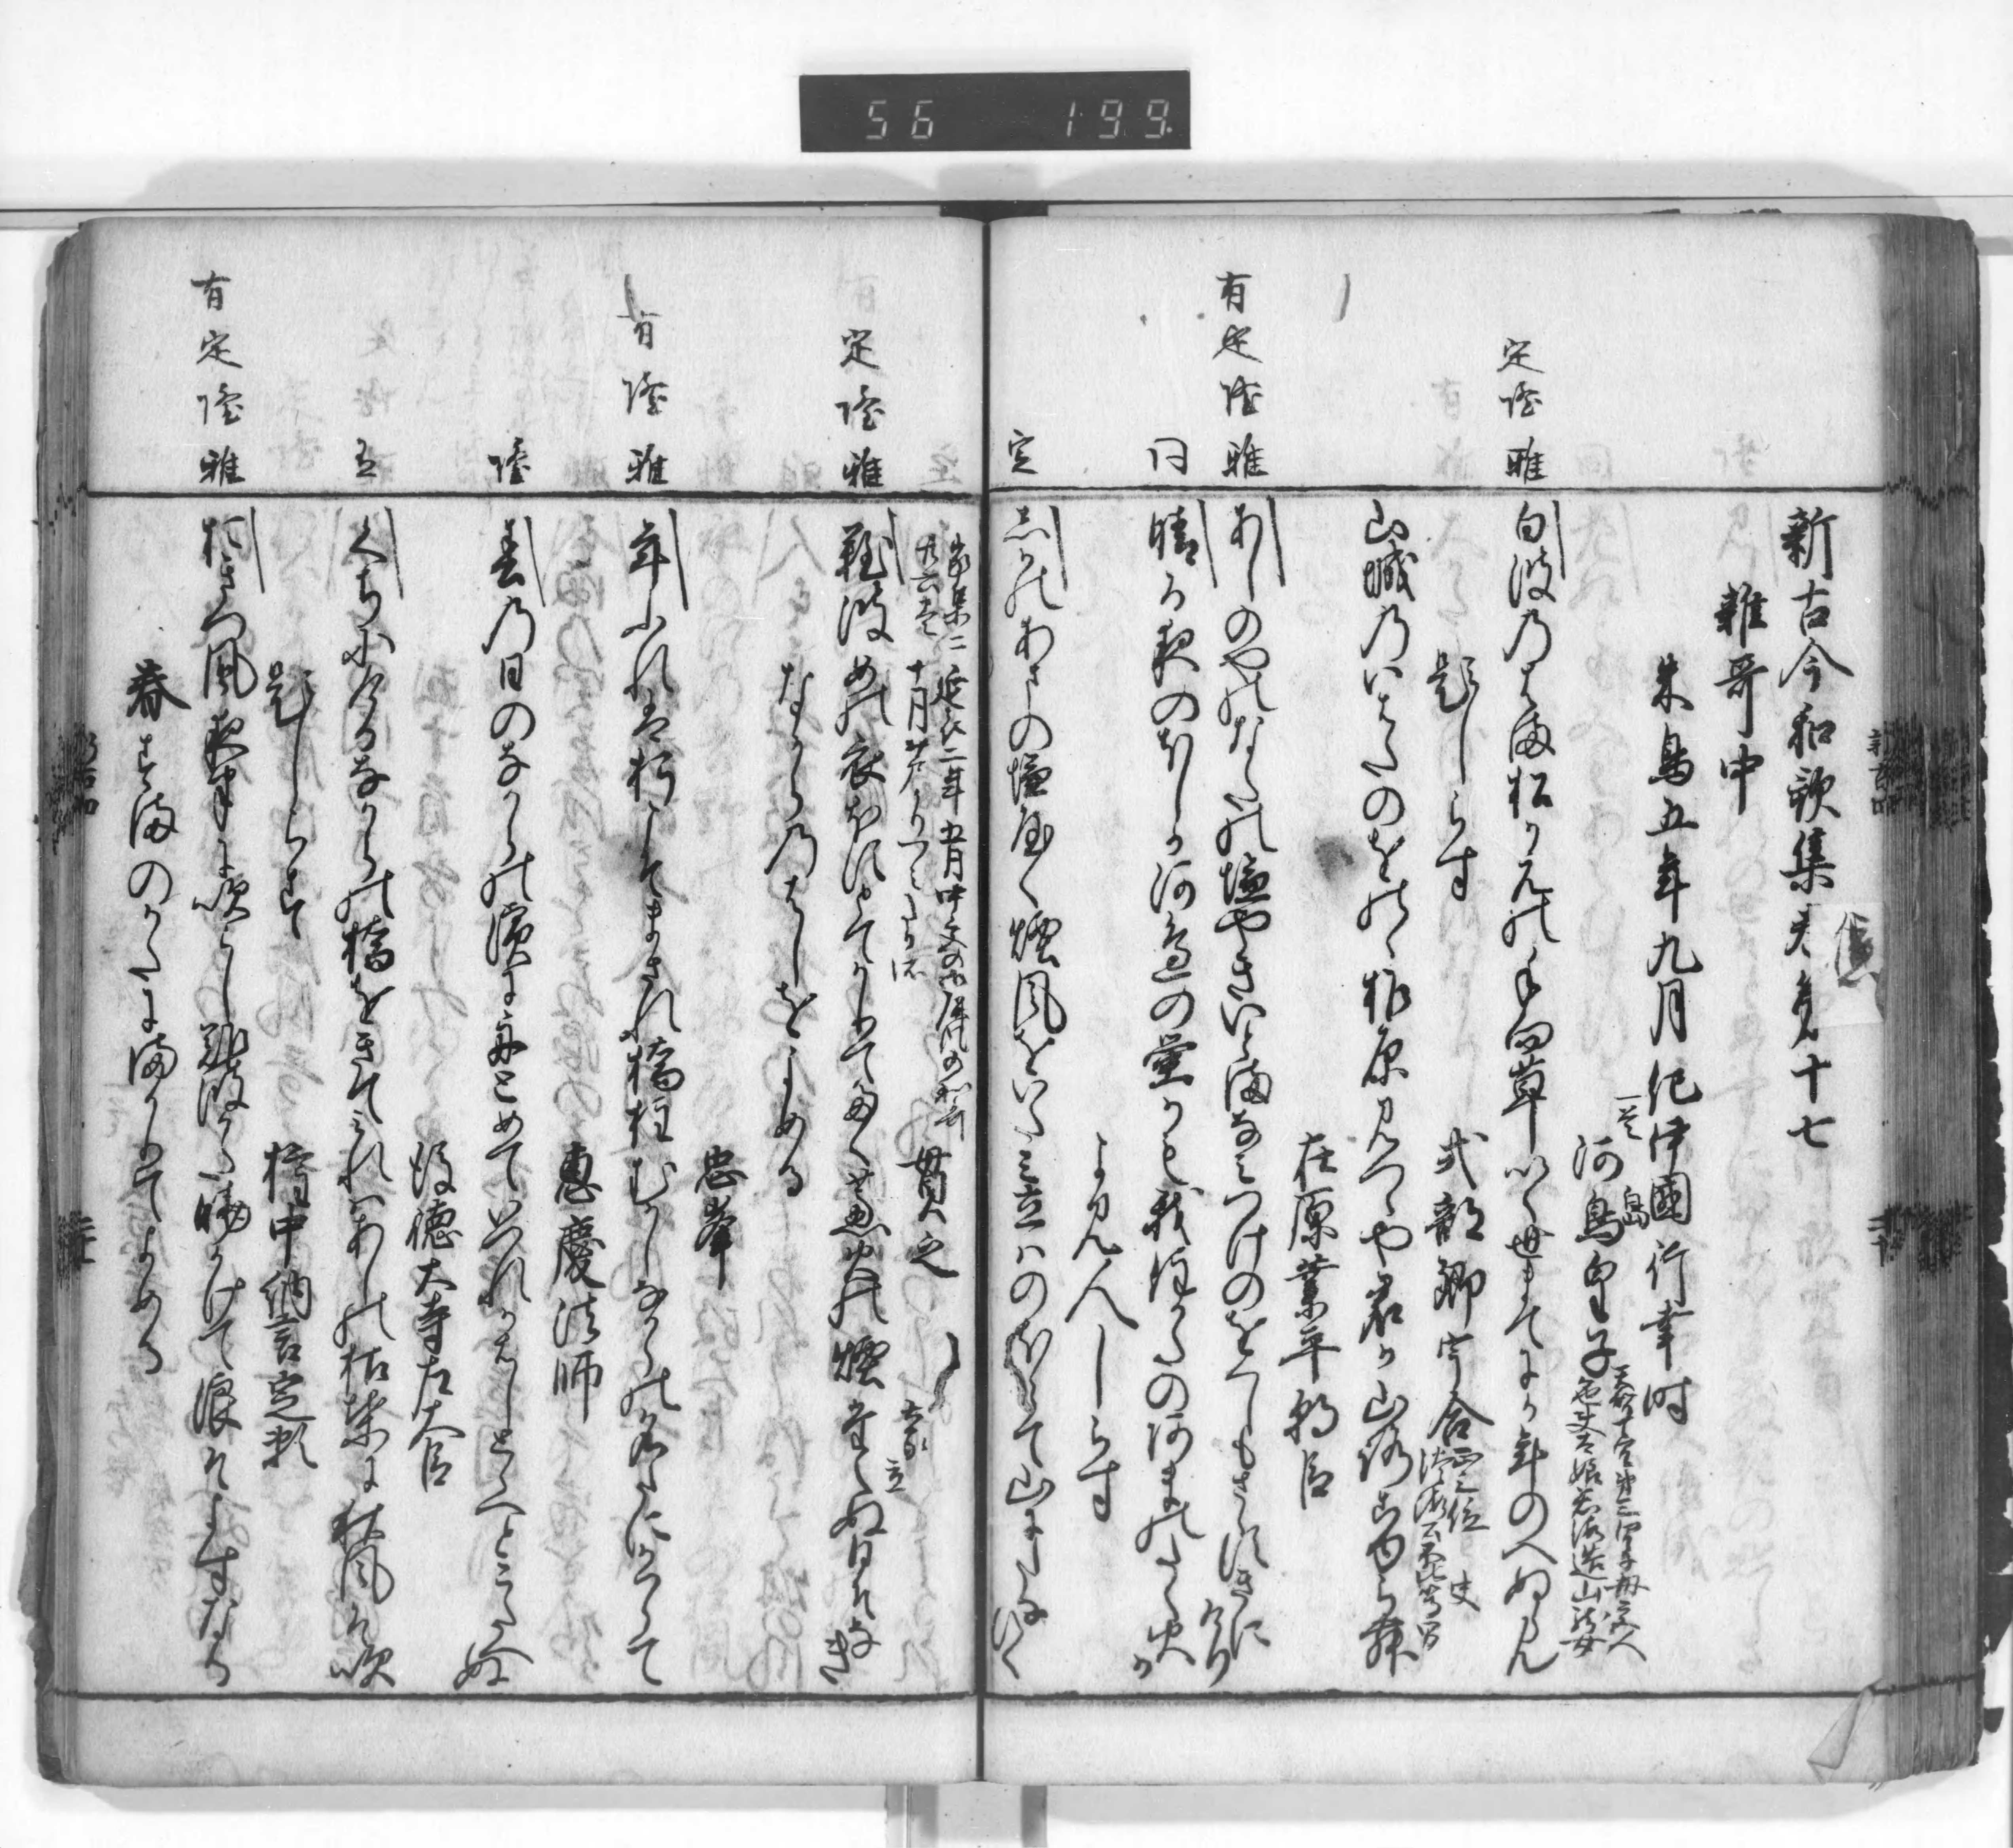 56 199
新古今和歌集巻第十七
雑哥中
朱鳥五年九月紀伊國行幸時
河島皇子
定隆雅
白波乃はま松かえの手向草いく世まてにか年のへぬらん
題しらす
式部卿宇合
山城乃いはたのをのゝ柞原見つゝや君か山路こゆらむ
在原業平朝臣
有定隆雅
あしのやのなたの塩やきいとまなみつけのをくしもさゝすきにけり
同
晴る夜のほしか河辺の蛍かも我住かたの海士のたく火か
よみ人しらす
定
志かのあまの塩やく煙風をいたみ立はのほらて山にたなひく
貫之
定隆雅
難波めの衣ほすとてかりてたく蘆火の煙たゝぬ日そなき
なからのはしをよめる
忠峯
有隆雅
年ふれは朽こそまされ橋柱むかしなからの名たにかはらて
恵慶法師
隆
春乃日のなからの濱に舟とめていつれかはしとゝへとこたへぬ
後徳大寺左大臣
五
くちにけるなからの橋をきてみれはあしの枯葉に秋風そ吹
題しらす
権中納言定頼
有定隆雅
おきつ風夜半に吹らし難波かた暁かけて浪そよすなる
春すまのかたにまかりてよめる